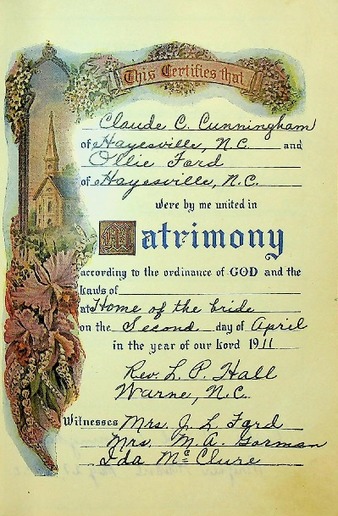 This Certifies that
Claude C. Cunningham
of Hayesville, N.C. and
Ollie Ford
of Hayesville, N.C.
were by me united in
Matrimony
according to the ordinance of GOD and the
Laws of
at Home of the bride
on the Second day of April
in the year of our Lord 1911
Rev. L. P. Hall
Warne, N.C.
Witnesses Mrs. J. L. Ford
Mrs. M. A. Gorman
Ida McClure